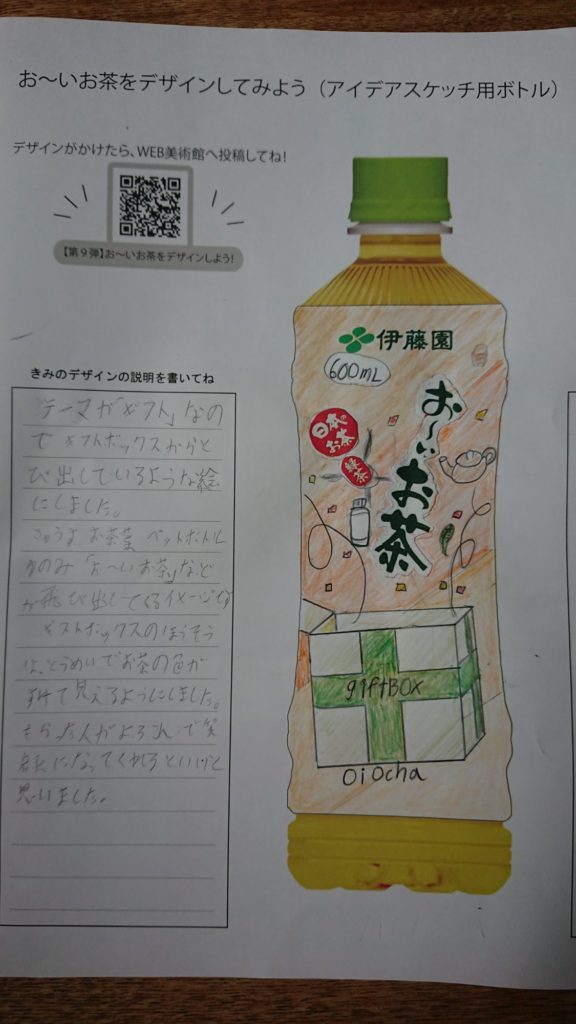 お～いお茶をデザインしてみよう（アイデアスケッチ用ボトル）
デザインがかけたら、WEB美術館へ投稿してね!
【第9弾】お～いお茶をデザインしよう!
きみのデザインの説明を書いてね
「テーマがギフト」なの
でギフトボックスからと
び出しているような絵
にしました。
きゅうす お茶葉 ペットボトル
ゆのみ「お～いお茶」など
が飛び出してくるイメージです
ギフトボックスのほうそう
は、とうめいでお茶の色が
すけて見えるようにしました。
もらった人がよろこんで笑
顔になってくれるといいと
思いました。
伊藤園
600mL
お～いお茶
日本のお茶
緑茶
giftBOX
oiocha